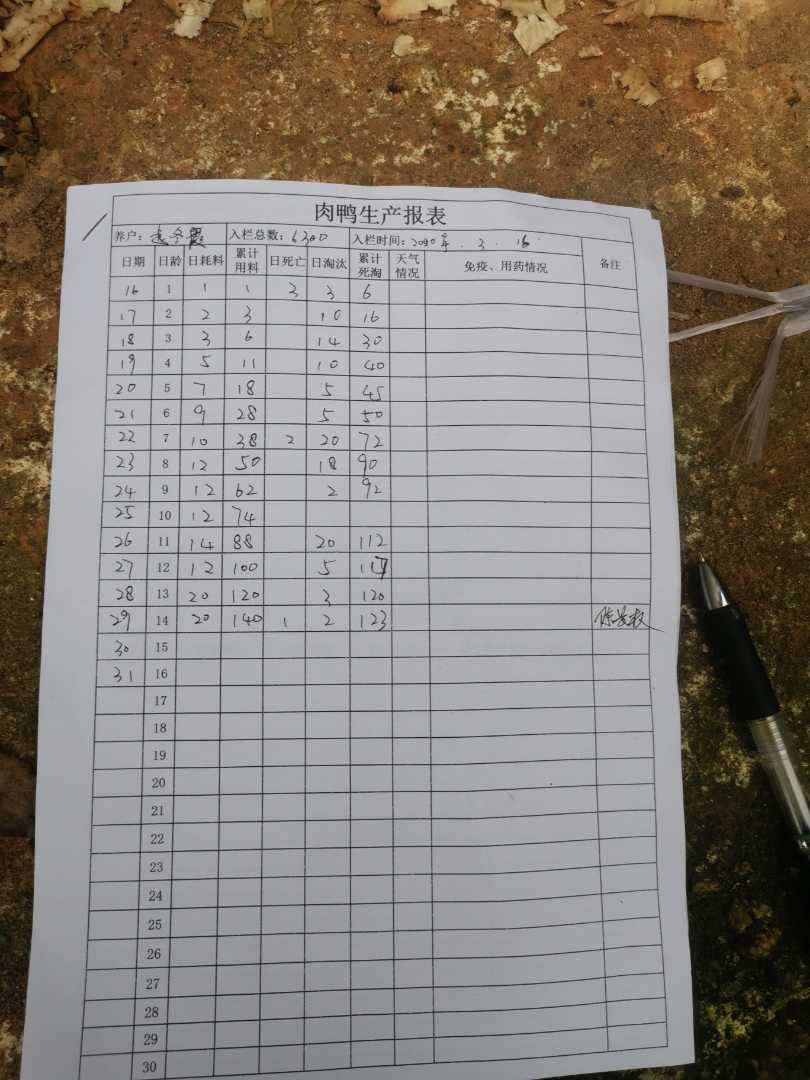 肉鸭生产报表
养户: 入栏总数: 6300 入栏时间: 年 . 3 . 16
日期 日龄 日耗料 累计用料 日死亡 日淘汰 累计死淘 天气情况 免疫、用药情况 备注
16 1 1 1 3 3 6
17 2 2 3 10 16
18 3 3 6 14 30
19 4 5 11 10 40
20 5 7 18 5 45
21 6 9 28 5 50
22 7 10 38 2 20 72
23 8 12 50 18 90
24 9 12 62 2 92
25 10 12 74
26 11 14 88 20 112
27 12 12 100 5 117
28 13 20 120 3 120
29 14 20 140 1 2 123
30 15
31 16
17
18
19
20
21
22
23
24
25
26
27
28
29
30